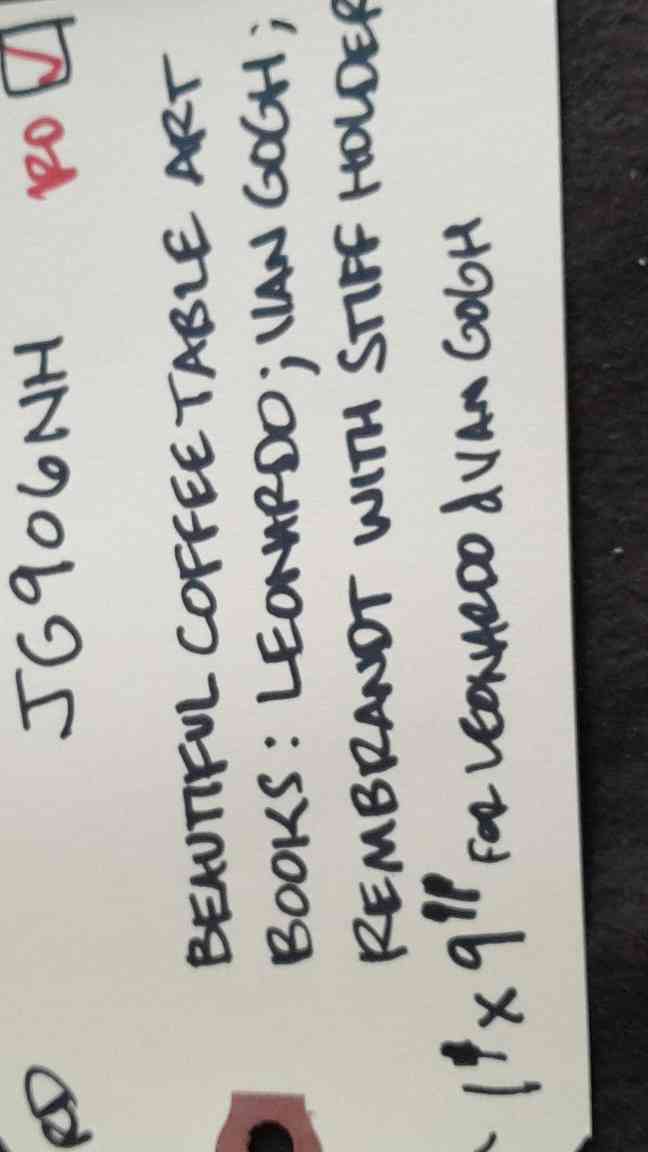 JG906NH RD
BEAUTIFUL COFFEE TABLE ART
BOOKS: LEONARDO; VAN GOGH;
REMBRANDT WITH STIFF HOLDER
1" x 9" FOR LEONARDO & VAN GOGH